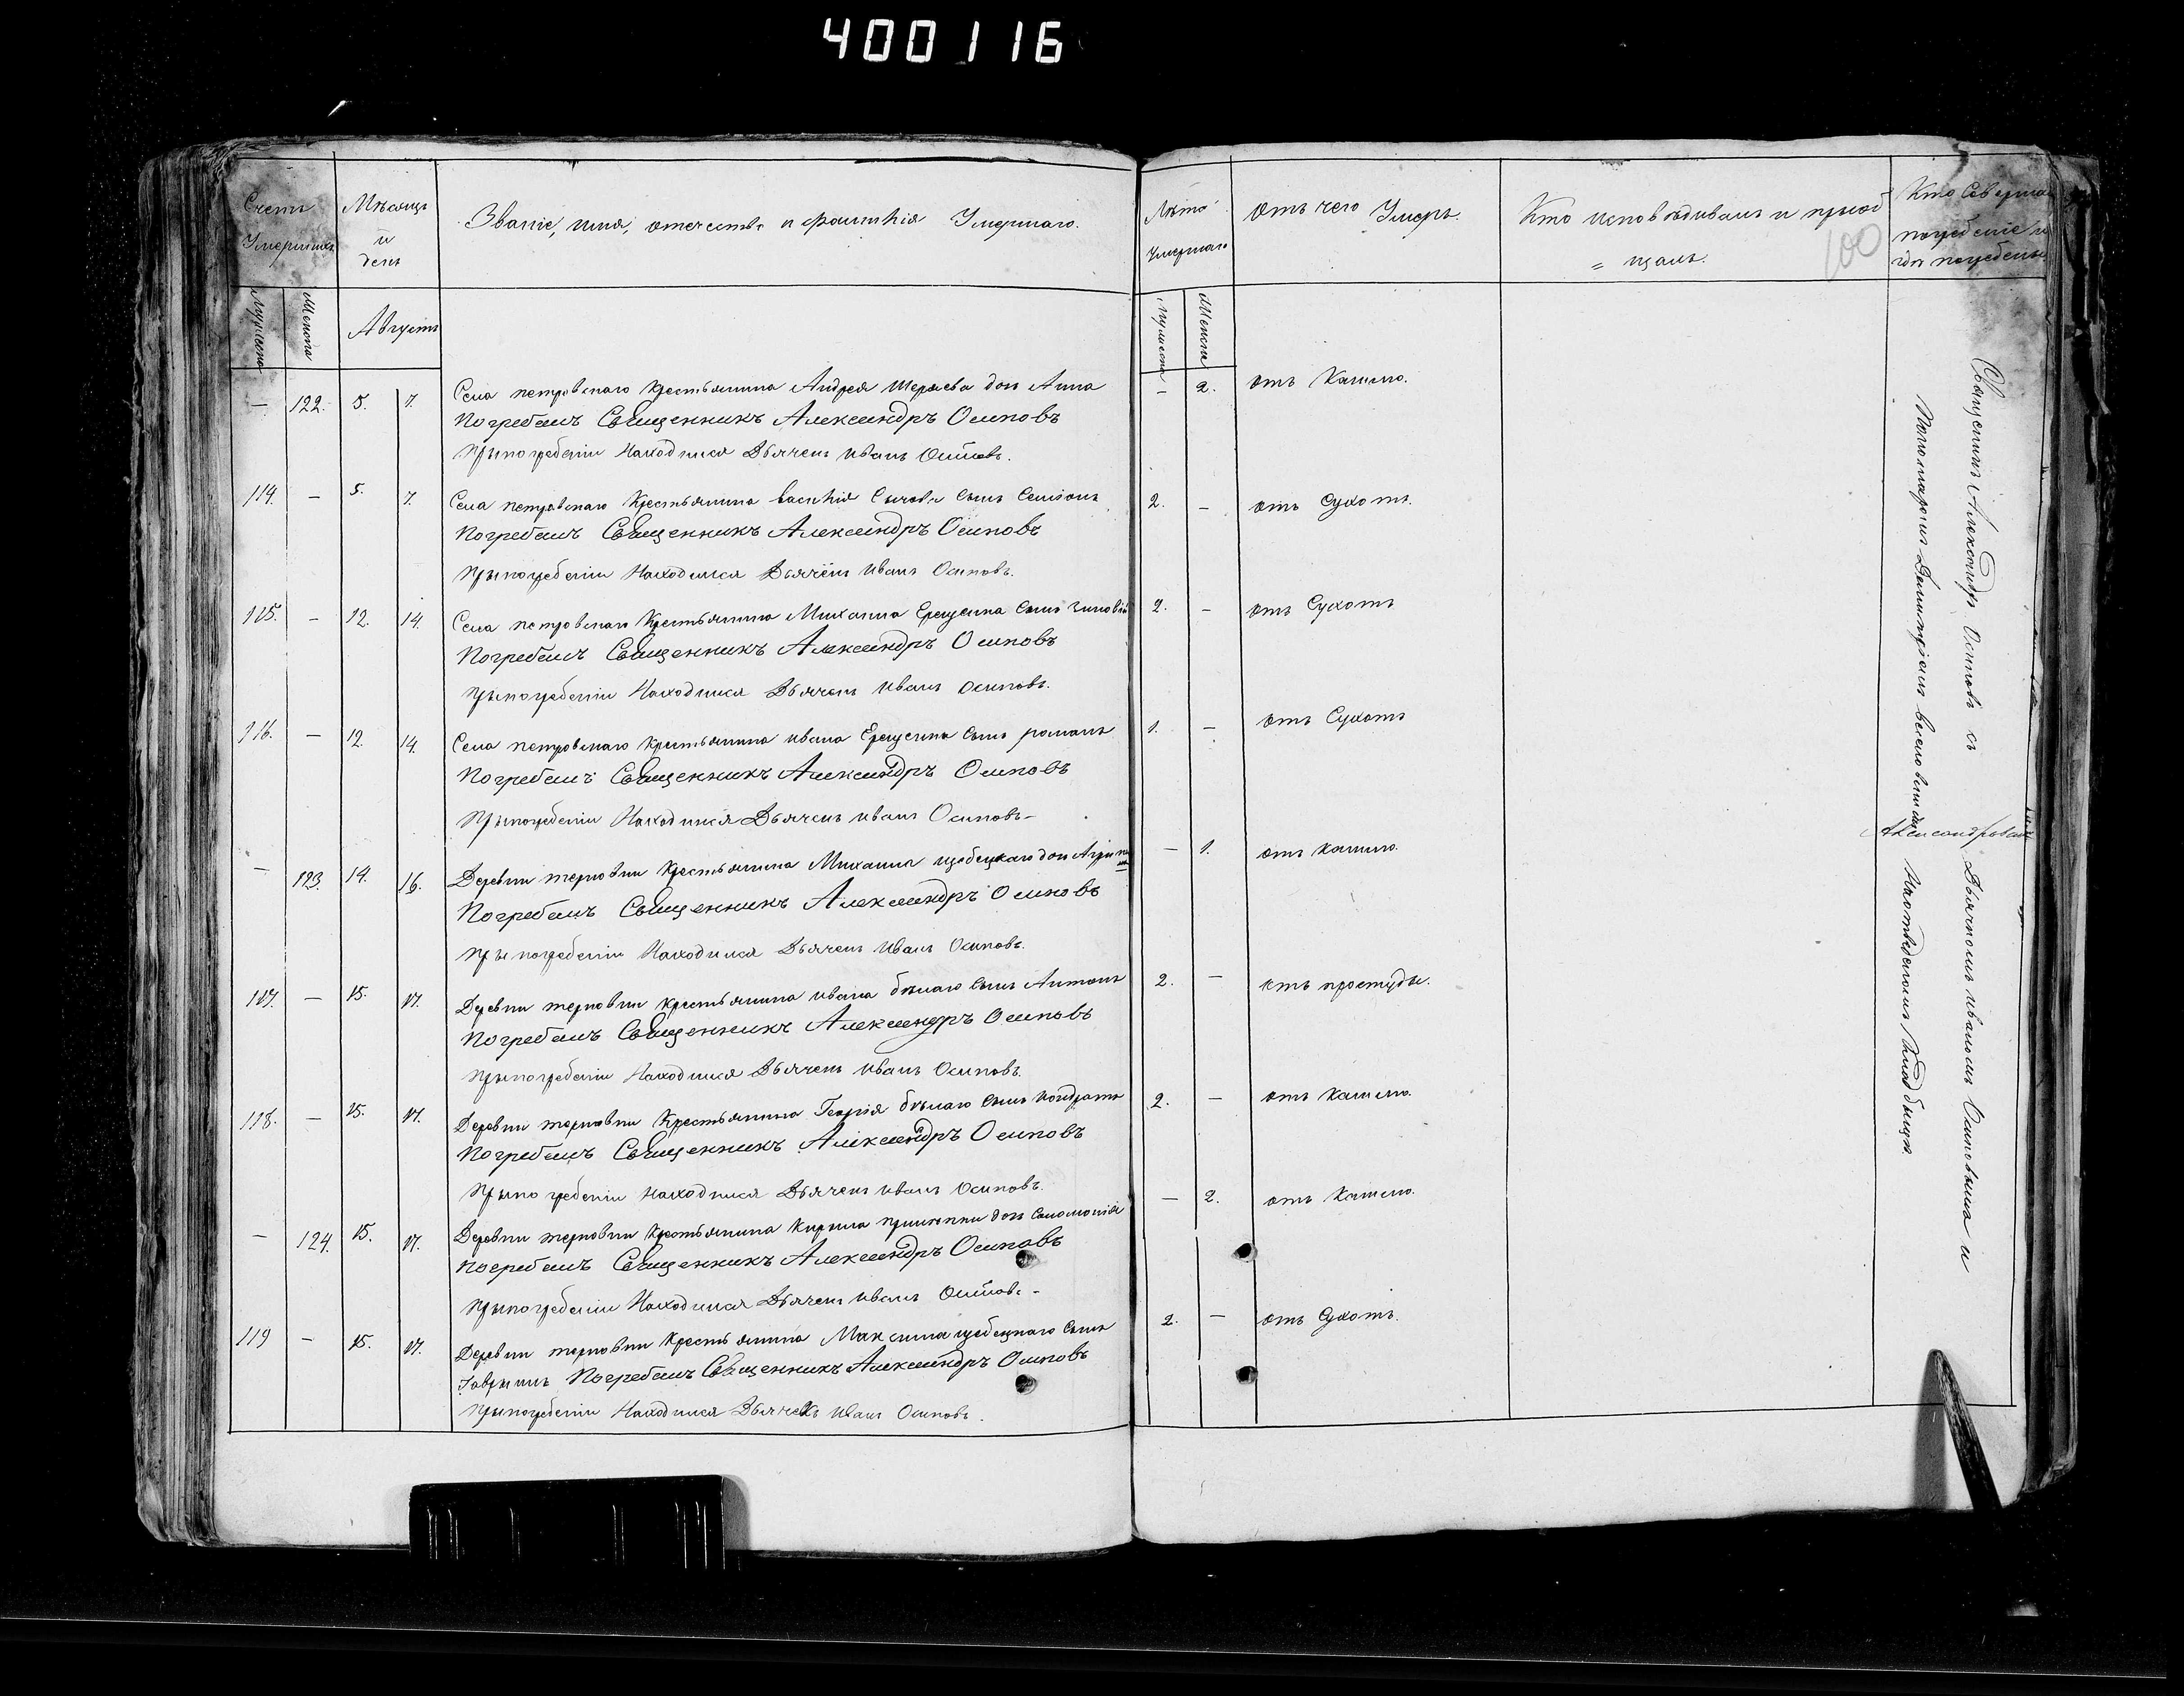 400116
Счетъ Умершихъ
Мѣсяцъ и день
Званіе, имя, отечество и фамилія Умершаго.
Лѣта Умершаго
отъ чего Умеръ.
Кто исповѣдывалъ и пріоб
= щалъ.
100
Кто Совершалъ
погребеніе и
гдѣ погребены
Мужеска
Женска
Августъ
Мужеска
Женска
— 122. 5. 7. Села петровскаго Крестьянина Андрея дочь Анна — 2. отъ Кашлю.
Погребалъ Священникъ Александръ Осиповъ
Прыпогребеніи Находился Дьячекъ иванъ Осиповъ.
114. — 5. 7. Села петровскаго Крестьянина василія Сычова Сынъ Семіонъ 2. — отъ Сухотъ.
Погребалъ Священникъ Александръ Осиповъ
Прыпогребеніи Находился Дьячекъ Иванъ Осиповъ.
115. — 12. 14. Села петровскаго Крестьянина Михаила Ерещенка Сынъ Зиновій 2. — отъ Сухотъ
Погребалъ Священникъ Александръ Осиповъ
Прыпогребеніи Находился Дьячекъ иванъ осиповъ.
116. — 12. 14. Села петровскаго крестьянина ивана Ерещенка Сынъ романъ 1. — отъ Сухотъ
Погребалъ Священникъ Александръ Осиповъ
Прыпогребеніи Находился Дьячекъ иванъ Осиповъ—
— 123. 14. 16. Деревни терновки Крестьянина Михаила щебецкаго дочь — 1. отъ кашлю.
Погребалъ Священникъ Александръ Осиповъ
Прыпогребеніи Находился Дьячекъ Иванъ Осиповъ.
117. — 15. 17. Деревни терновки крестьянина ивана бѣлаго Сынъ Антонъ 2. — отъ простуды.
Погребалъ Священникъ Александръ Осиповъ
Прыпогребеніи Находился Дьячекъ иванъ Осиповъ.
118. — 15. 17. Деревни терновки Крестьянина Георгія бѣлаго Сынъ кондратъ 2. — отъ кашлю.
Погребалъ Священникъ Александръ Осиповъ
Прыпогребеніи находился Дьячекъ иванъ Осиповъ.
— 124. 15. 17. Деревни терновки Крестьянина Кирила дочь Соломонія — 2. отъ Кашлю.
Погребалъ Священникъ Александръ Осиповъ
Прыпогребеніи Находился Дьячекъ иванъ Осиповъ—
119 — 15. 17. Деревни терновки Крестьянина Максима щебецкаго Сынъ 2. — отъ Сухотъ.
Гаврыилъ Погребалъ Священникъ Александръ Осиповъ
Прыпогребеніи Находился Дьячекъ иванъ Осиповъ.
Священникъ Александръ Осиповъ съ Дьячкомъ иваномъ Осиповымъ и
Пономаромъ Димитріемъ
Александровомъ
Кладбищѣ.